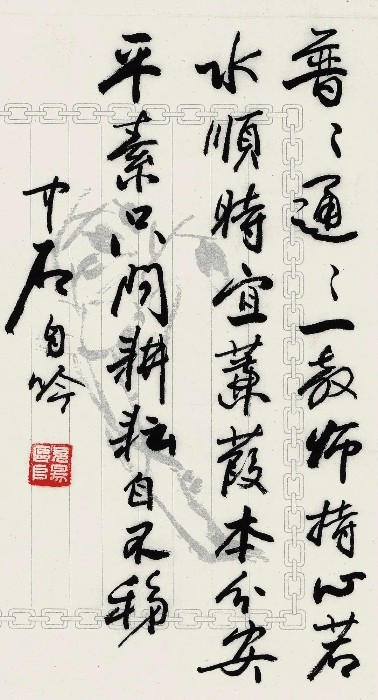 普〻通〻一教师持心若
水順時宜蒹葭本分安
平素只问耕耘自不移
中石自吟